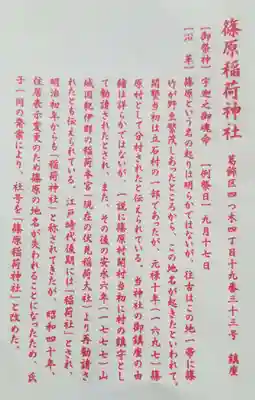 篠原稲荷神社
葛飾区四つ木四丁目十九番三十三号 鎮座
[御祭神] 宇迦之御魂命 [例祭日] 九月十七日
[沿革] 篠原という名の起りは明らかではないが、往古はこの地一帯に篠
竹が野生繁茂しあったところから、この地名が起きたといわれて、
開墾当初は立石村の一部であったが、元禄十年(一六九七)篠
原村として分村されたと伝えられている。 当神社の御鎮座の由
緒は詳らかではないが、(一説に篠原村開村当初に村の鎮守とし
て勧請されたとされ、また、その後の安永六年(一七七七)山
城国紀伊郡の稲荷本宮(現在の伏見稲荷大社)より再勧請さ
れたとも伝えられている。江戸時代後期には「稲荷社」とされ、
明治初年からも「稲荷神社」と称されてきたが、 昭和四十年、
住居表示変更のため篠原の地名が失われることになったため、氏
子一同の発案により、社号を「篠原稲荷神社」と改めた。